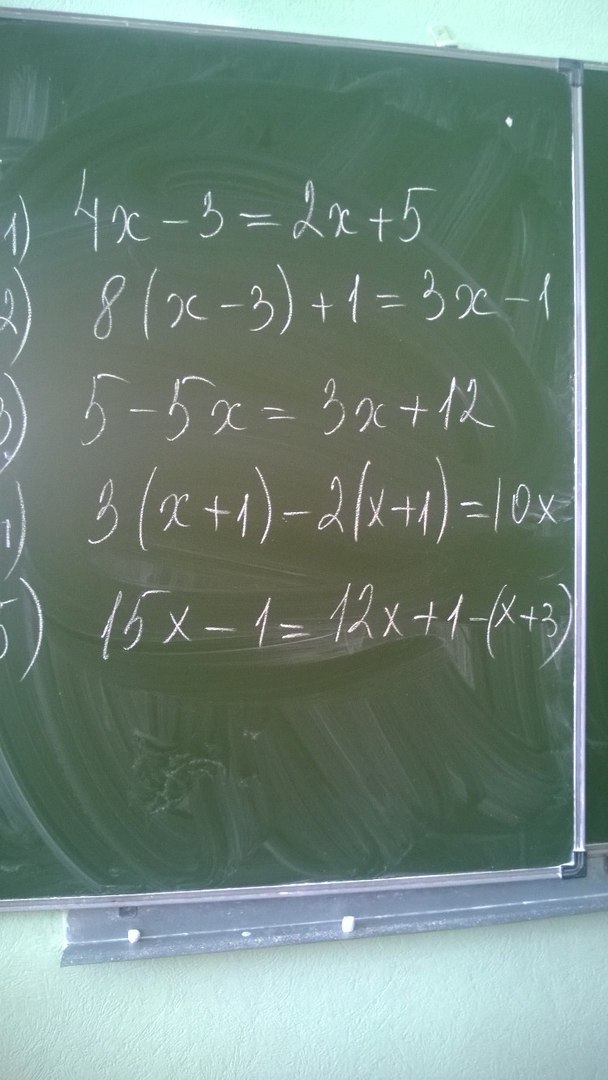 1) 4x-3=2x+5
2) 8(x-3)+1=3x-1
3) 5-5x=3x+12
4) 3(x+1)-2(x+1)=10x
5) 15x-1=12x+1-(x+3)